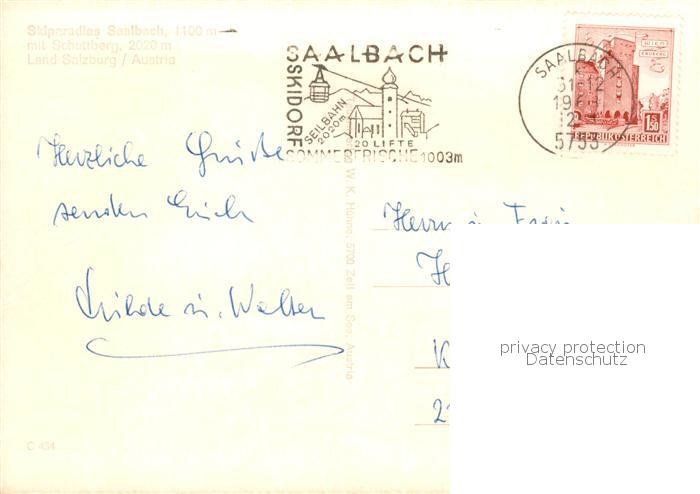 Skiparadies Saalbach, 1100 m
mit Schattberg, 2020 m
Land Salzburg / Austria
SAALBACH
SKIDORF
SEILBAHN
2020m
20 LIFTE
SOMMERFRISCHE 1003m
SAALBACH
31.12
19
2
5753
WIEN
ERDBERG
1S50
REPUBLIK ÖSTERREICH
Herzliche Grüße
senden Euch
u. Walter
W. K. Hunne, 5700 Zell am See, Austria
Herrn u. Frau
H
K
2
privacy protection
Datenschutz
C 454